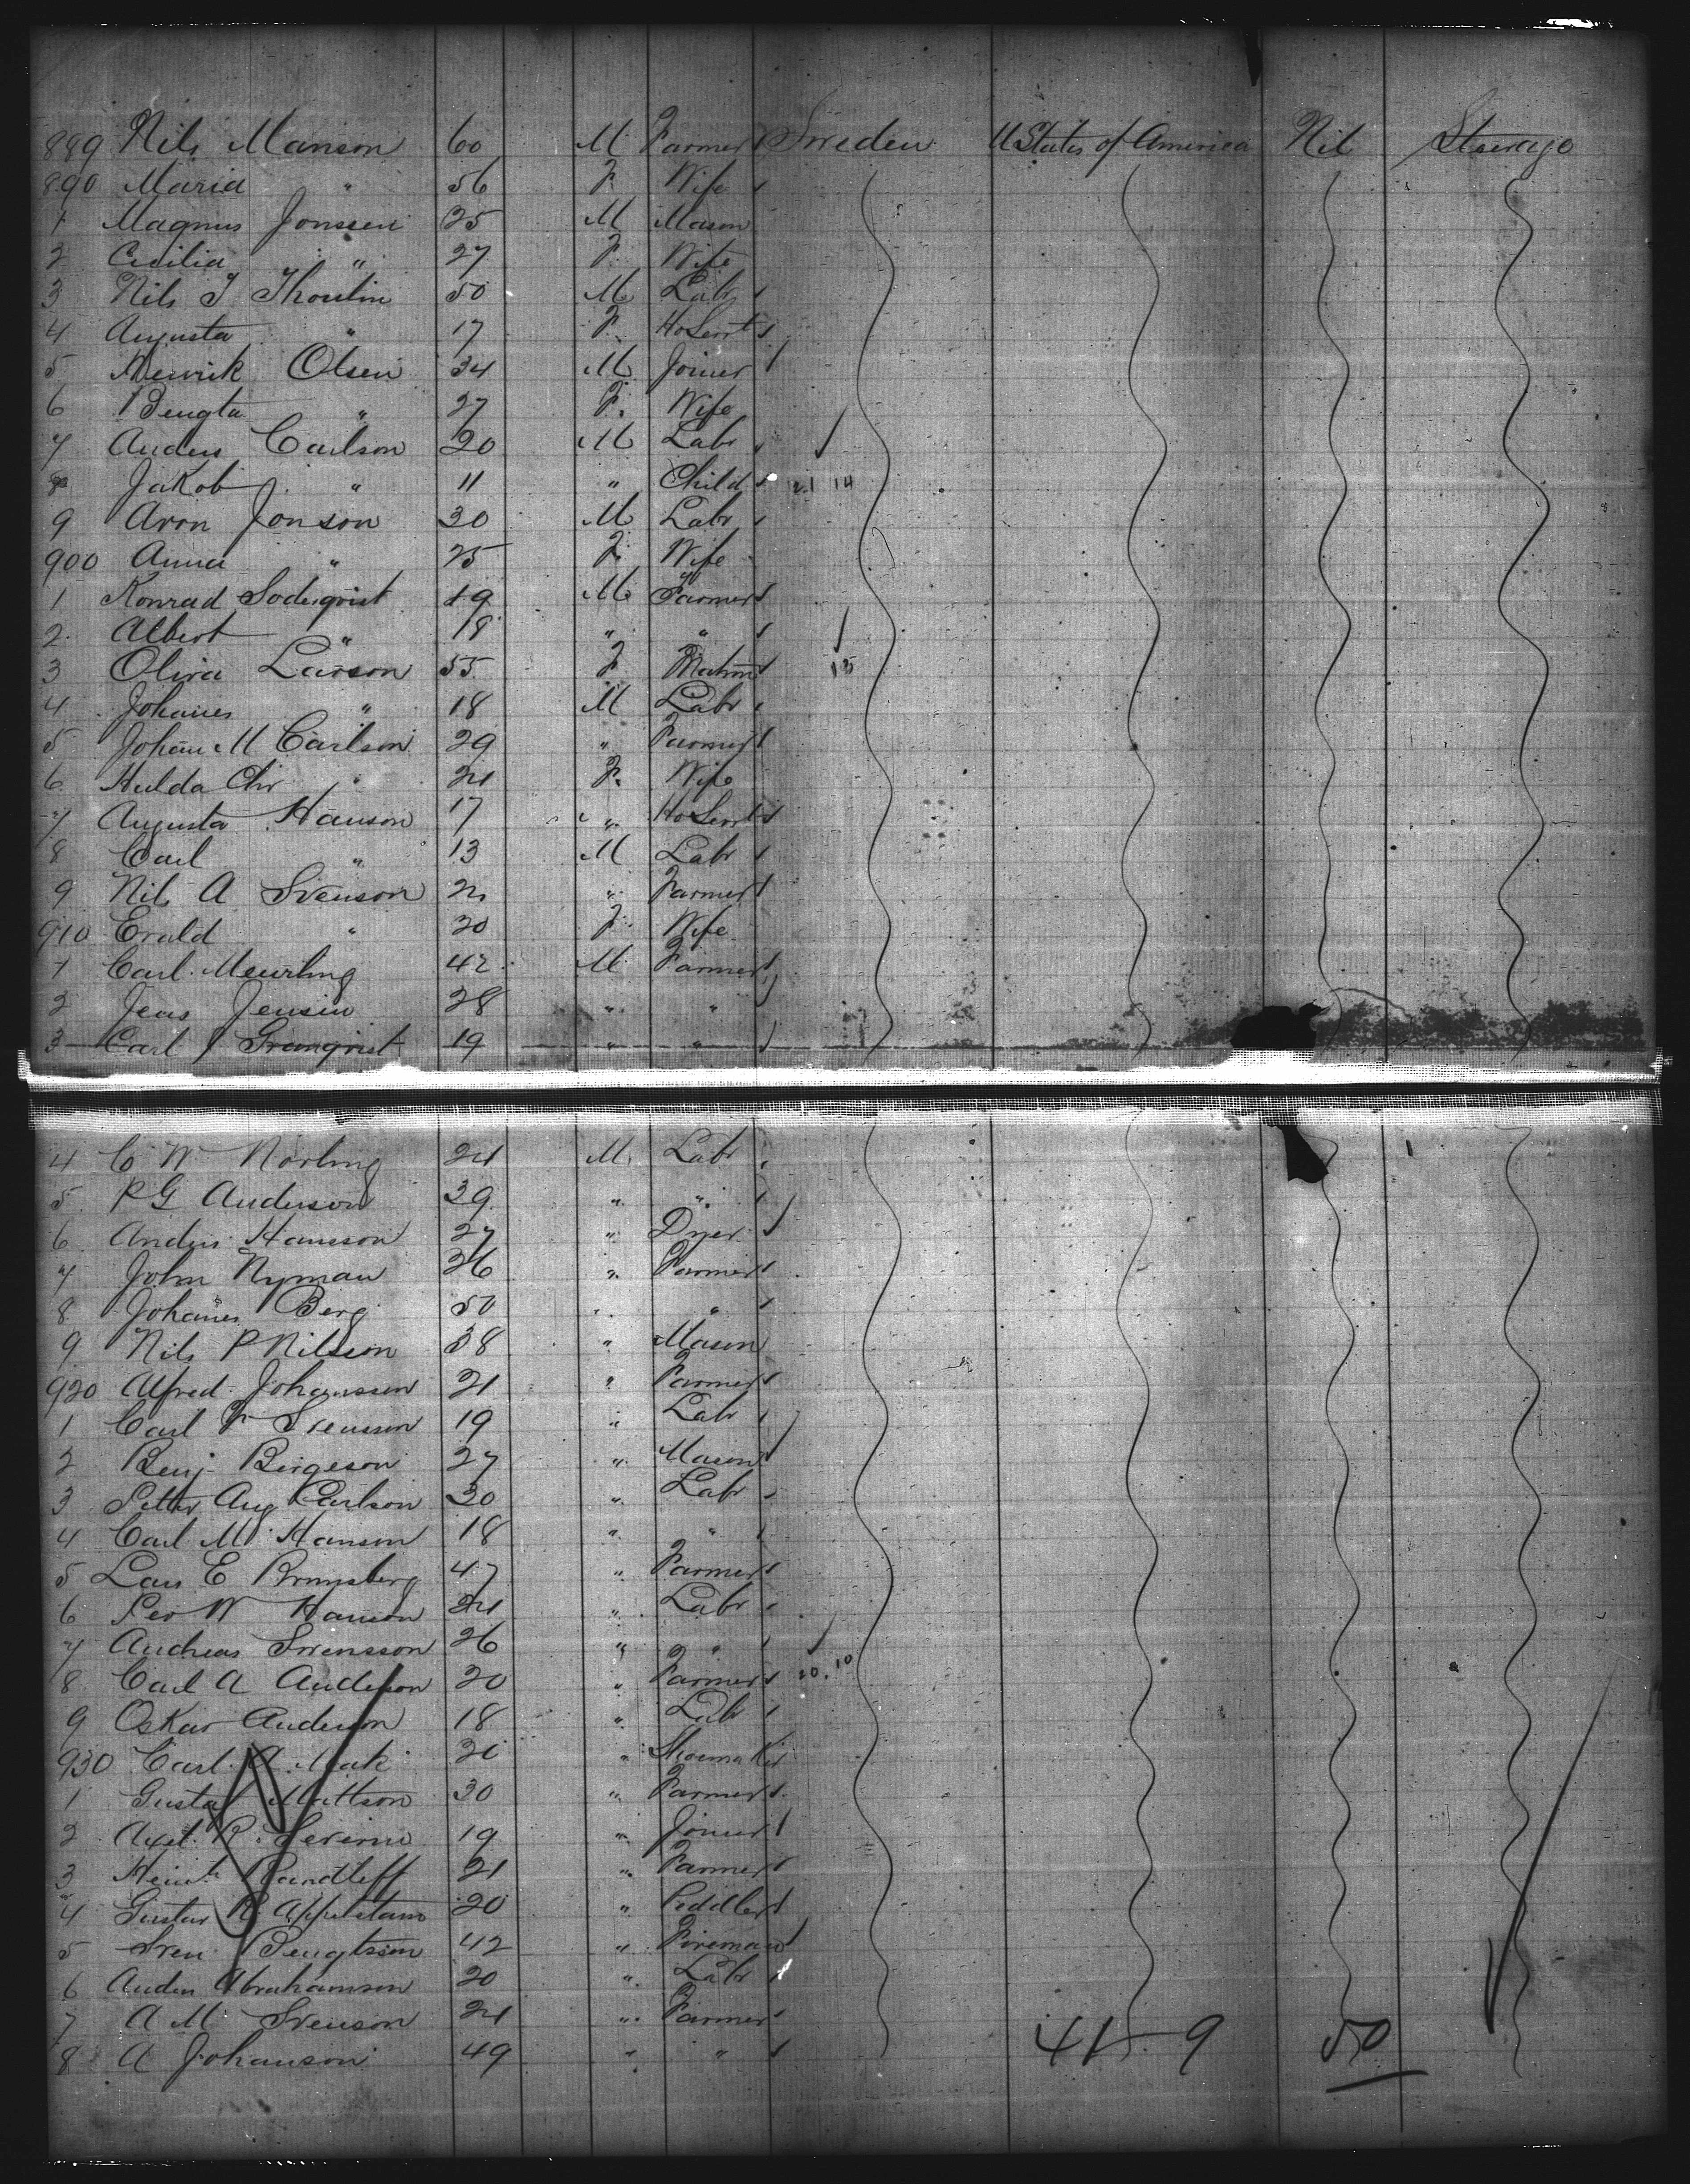 889 Nils Manson 60 M Farmer Sweden U States of America Nil Steerage
890 Maria " 56 F Wife
1 Magnus Jonssen 25 M Mason
2 Cecilia " 27 F Wife
3 Nils J Thoulin 50 M Labr
4 Augusta " 17 F HoServt
5 Olsen 34 M Joiner
6 Bengta " 27 F. Wife
7 Anders Carlson 20 M Labr
8 Jakob " 11 " Child
9 Aron Jonson 30 M Labr
900 Anna " 25 F Wife
1 Konrad Soderqvist 19 M Farmer
2 Albert " 18 " "
3 Oliva Larson 55 F Matron 15
4 Johanes " 18 M Labr
5 Johan M Carlson 29 " Farmer
6 Hulda Chr " 24 F. Wife
7 Augusta Hanson 17 " HoServt
8 Carl " 13 M Labr
9 Nils A Svenson " Farmer
910 " 20 F Wife
1 Carl Meurling 42 M Farmer
2 Jens Jensen 28 " "
3 Carl J Granqvist 19 " "
4 C W Norling 24 M Labr
5 P G Anderson 39 " "
6 Anders Hansson 27 " Dyer
7 John Nyman 36 " Farmer
8 Johanes Berg 50 " "
9 Nils P Nilsson 38 " Mason
920 Alfred Johansson 21 " Farmer
1 Carl F Svensson 19 " Labr
2 Benj Birgeson 27 " Mason
3 Petter Aug Carlson 30 " Labr
4 Carl M Hanson 18 " "
5 Lars E 47 " Farmer
6 Per W Hanson 24 " Labr
7 Andreas Svensson 26 " "
8 Carl A Anderson 20 " Farmer
9 Oskar Anderson 18 " Labr
930 Carl 26 " Shoemaker
1 Gustaf Mattson 30 " Farmer
2 Axel R 19 " Joiner
3 21 " Farmer
4 Gustav 20 " Peddler
5 Sven Bengtsson 42 " Fireman
6 Anders Abrahamson 20 " Labr
7 A M Svenson 24 " Farmer
8 A Johanson 49 " "
41 - 9 50